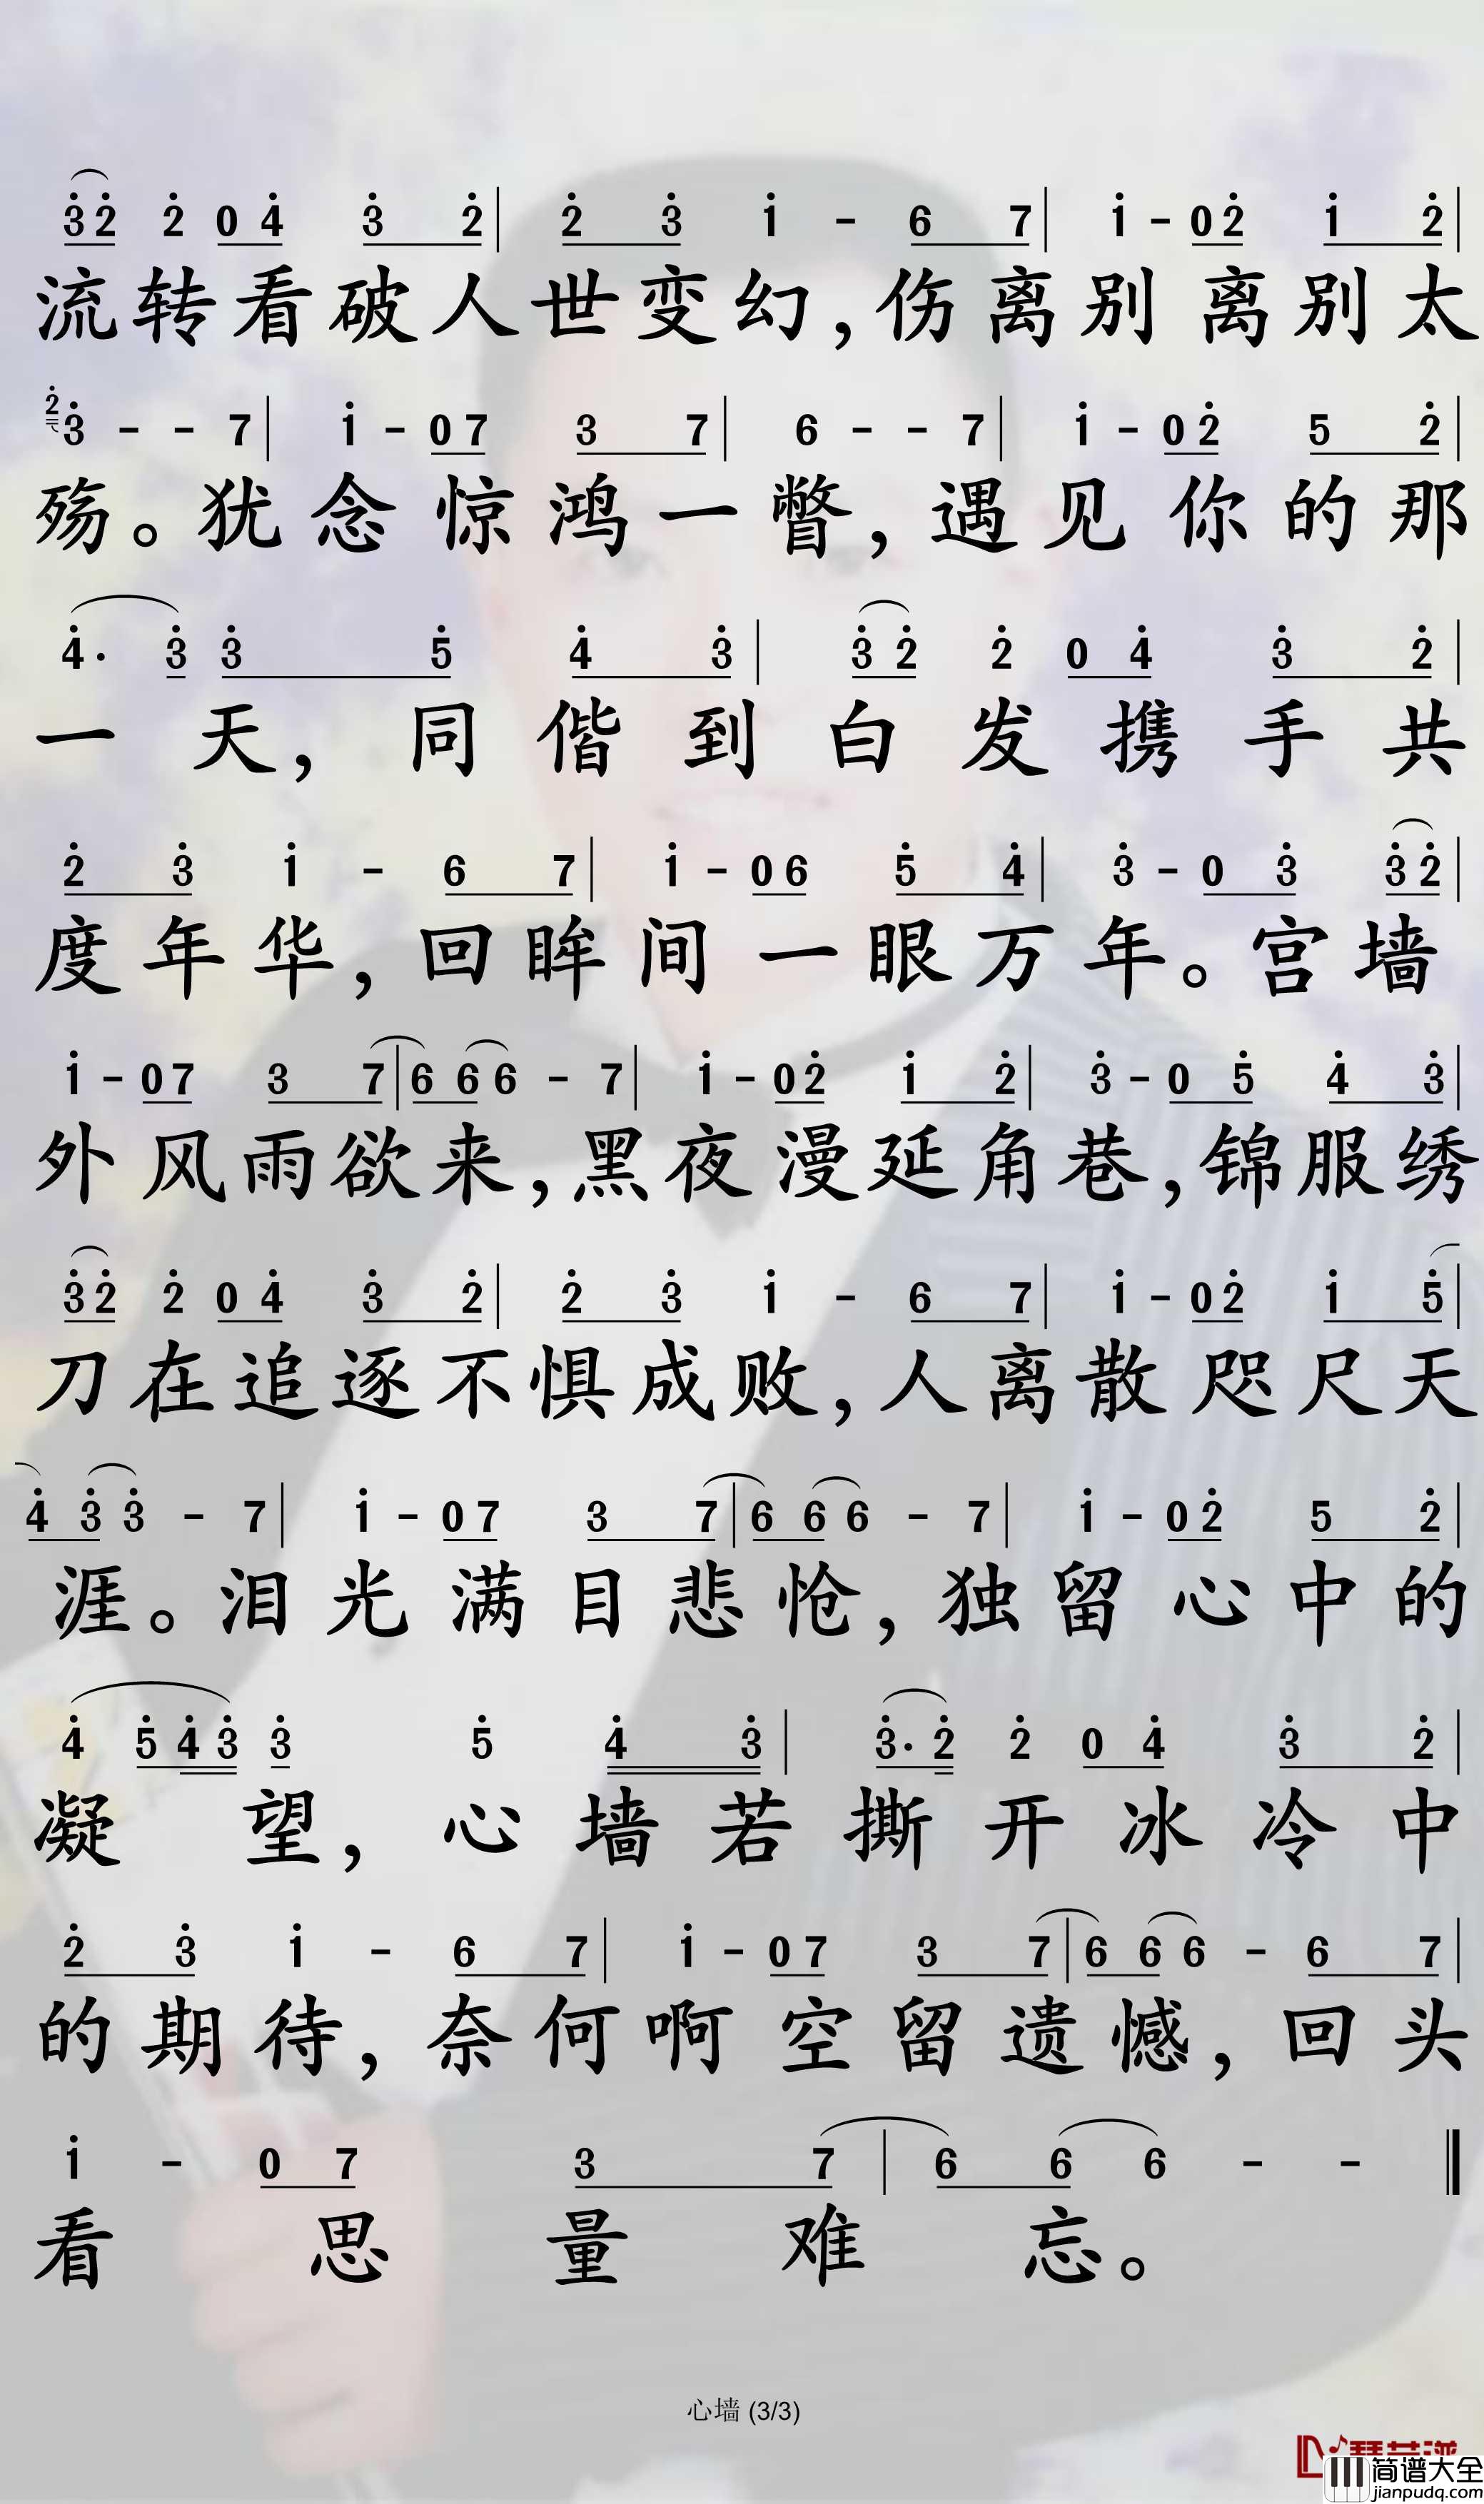 3̇2̇ 2̇ 0 4̇ 3̇ 2̇ | 2̇ 3̇ 1̇ - 6 7 | 1̇ - 0 2̇ 1̇ 2̇ |
流转看破人世变幻，伤离别离别太
2̇ 3̇ - - 7 | 1̇ - 0 7 3 7 | 6 - - 7 | 1̇ - 0 2̇ 5 2̇ |
殇。犹念惊鸿一瞥，遇见你的那
4̇· 3̇ 3̇ 5̇ 4̇ 3̇ | 3̇ 2̇ 2̇ 0 4̇ 3̇ 2̇ |
一天，同偕到白发携手共
2̇ 3̇ 1̇ - 6 7 | 1̇ - 0 6 5̇ 4̇ | 3̇ - 0 3̇ 3̇ 2̇ |
度年华，回眸间一眼万年。宫墙
1̇ - 0 7 3 7 | 6 6 6 - 7 | 1̇ - 0 2̇ 1̇ 2̇ | 3̇ - 0 5̇ 4̇ 3̇ |
外风雨欲来，黑夜漫延角巷，锦服绣
3̇ 2̇ 2̇ 0 4̇ 3̇ 2̇ | 2̇ 3̇ 1̇ - 6 7 | 1̇ - 0 2̇ 1̇ 5̇ |
刀在追逐不惧成败，人离散咫尺天
4̇ 3̇ 3̇ - 7 | 1̇ - 0 7 3 7 | 6 6 6 - 7 | 1̇ - 0 2̇ 5 2̇ |
涯。泪光满目悲怆，独留心中的
4̇ 5̇ 4̇ 3̇ 3̇ 5̇ 4̇ 3̇ | 3̇· 2̇ 2̇ 0 4̇ 3̇ 2̇ |
凝望，心墙若撕开冰冷中
2̇ 3̇ 1̇ - 6 7 | 1̇ - 0 7 3 7 | 6 6 6 - 6 7 |
的期待，奈何啊空留遗憾，回头
1̇ - 0 7 3 7 | 6 6 6 - - ‖
看思量难忘。
心墙 (3/3)
简谱大全
jianpudq.com